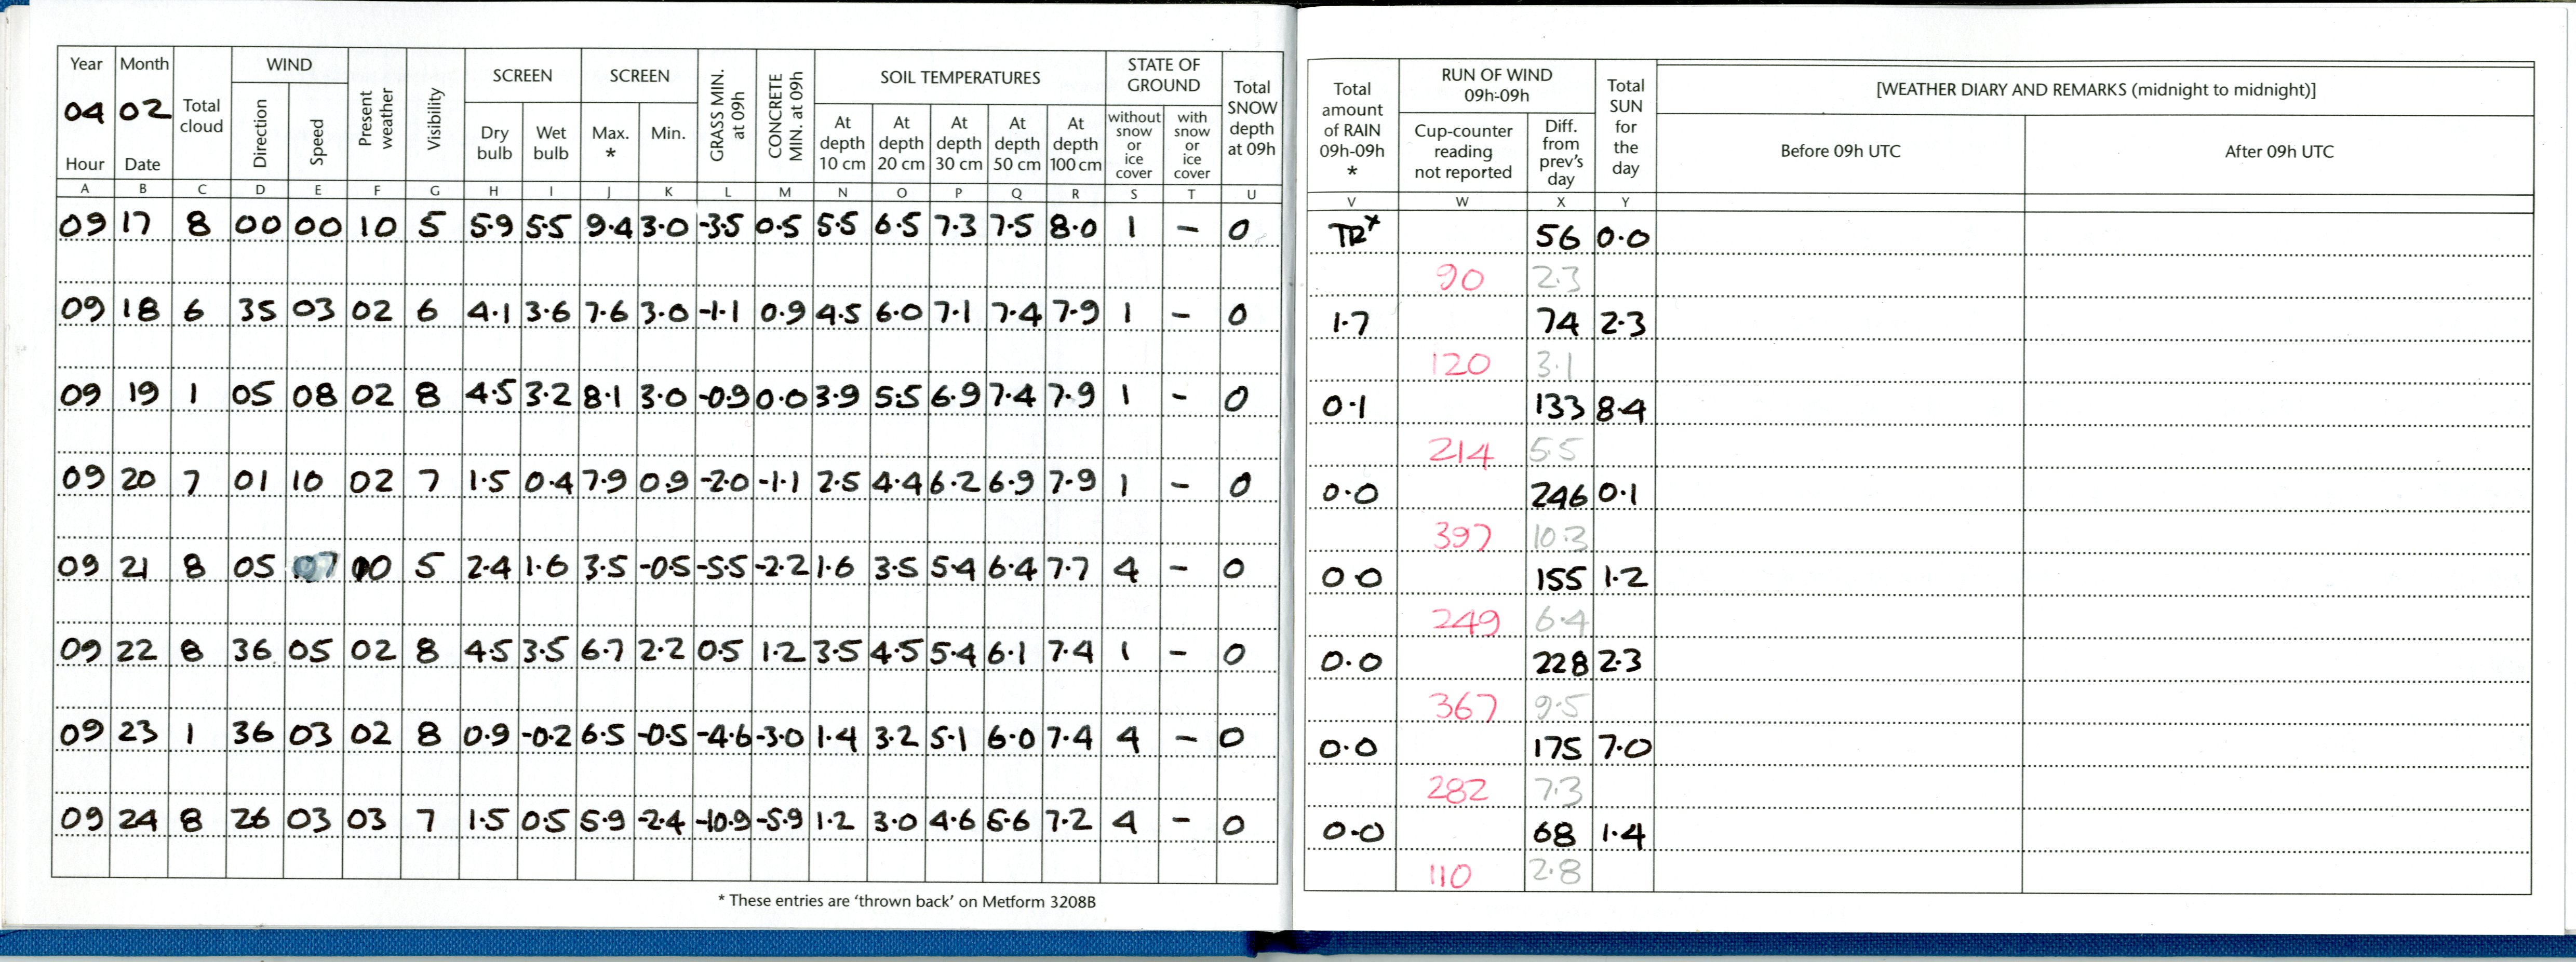 Year Month WIND SCREEN SCREEN SOIL TEMPERATURES STATE OF GROUND
04 02 Total cloud Direction Speed Present weather Visibility Dry bulb Wet bulb Max. * Min. GRASS MIN. at 09h CONCRETE MIN. at 09h At depth 10 cm At depth 20 cm At depth 30 cm At depth 50 cm At depth 100 cm without snow or ice cover with snow or ice cover Total SNOW depth at 09h
Hour Date
A B C D E F G H I J K L M N O P Q R S T U
09 17 8 00 00 10 5 5.9 5.5 9.4 3.0 -3.5 0.5 5.5 6.5 7.3 7.5 8.0 1 - 0
09 18 6 35 03 02 6 4.1 3.6 7.6 3.0 -1.1 0.9 4.5 6.0 7.1 7.4 7.9 1 - 0
09 19 1 05 08 02 8 4.5 3.2 8.1 3.0 -0.9 0.0 3.9 5.5 6.9 7.4 7.9 1 - 0
09 20 7 01 10 02 7 1.5 0.4 7.9 0.9 -2.0 -1.1 2.5 4.4 6.2 6.9 7.9 1 - 0
09 21 8 05 07 10 5 2.4 1.6 3.5 -0.5 -5.5 -2.2 1.6 3.5 5.4 6.4 7.7 4 - 0
09 22 8 36 05 02 8 4.5 3.5 6.7 2.2 0.5 1.2 3.5 4.5 5.4 6.1 7.4 1 - 0
09 23 1 36 03 02 8 0.9 -0.2 6.5 -0.5 -4.6 -3.0 1.4 3.2 5.1 6.0 7.4 4 - 0
09 24 8 26 03 03 7 1.5 0.5 5.9 -2.4 -10.9 -5.9 1.2 3.0 4.6 5.6 7.2 4 - 0
* These entries are 'thrown back' on Metform 3208B
Total amount of RAIN 09h-09h * RUN OF WIND 09h-09h Total SUN for the day [WEATHER DIARY AND REMARKS (midnight to midnight)]
Cup-counter reading not reported Diff. from prev's day Before 09h UTC After 09h UTC
V W X Y
TR* 56 0.0
90 2.3
1.7 74 2.3
120 3.1
0.1 133 8.4
214 5.5
0.0 246 0.1
397 10.3
0 0 155 1.2
249 6.4
0.0 228 2.3
367 9.5
0.0 175 7.0
282 7.3
0.0 68 1.4
110 2.8